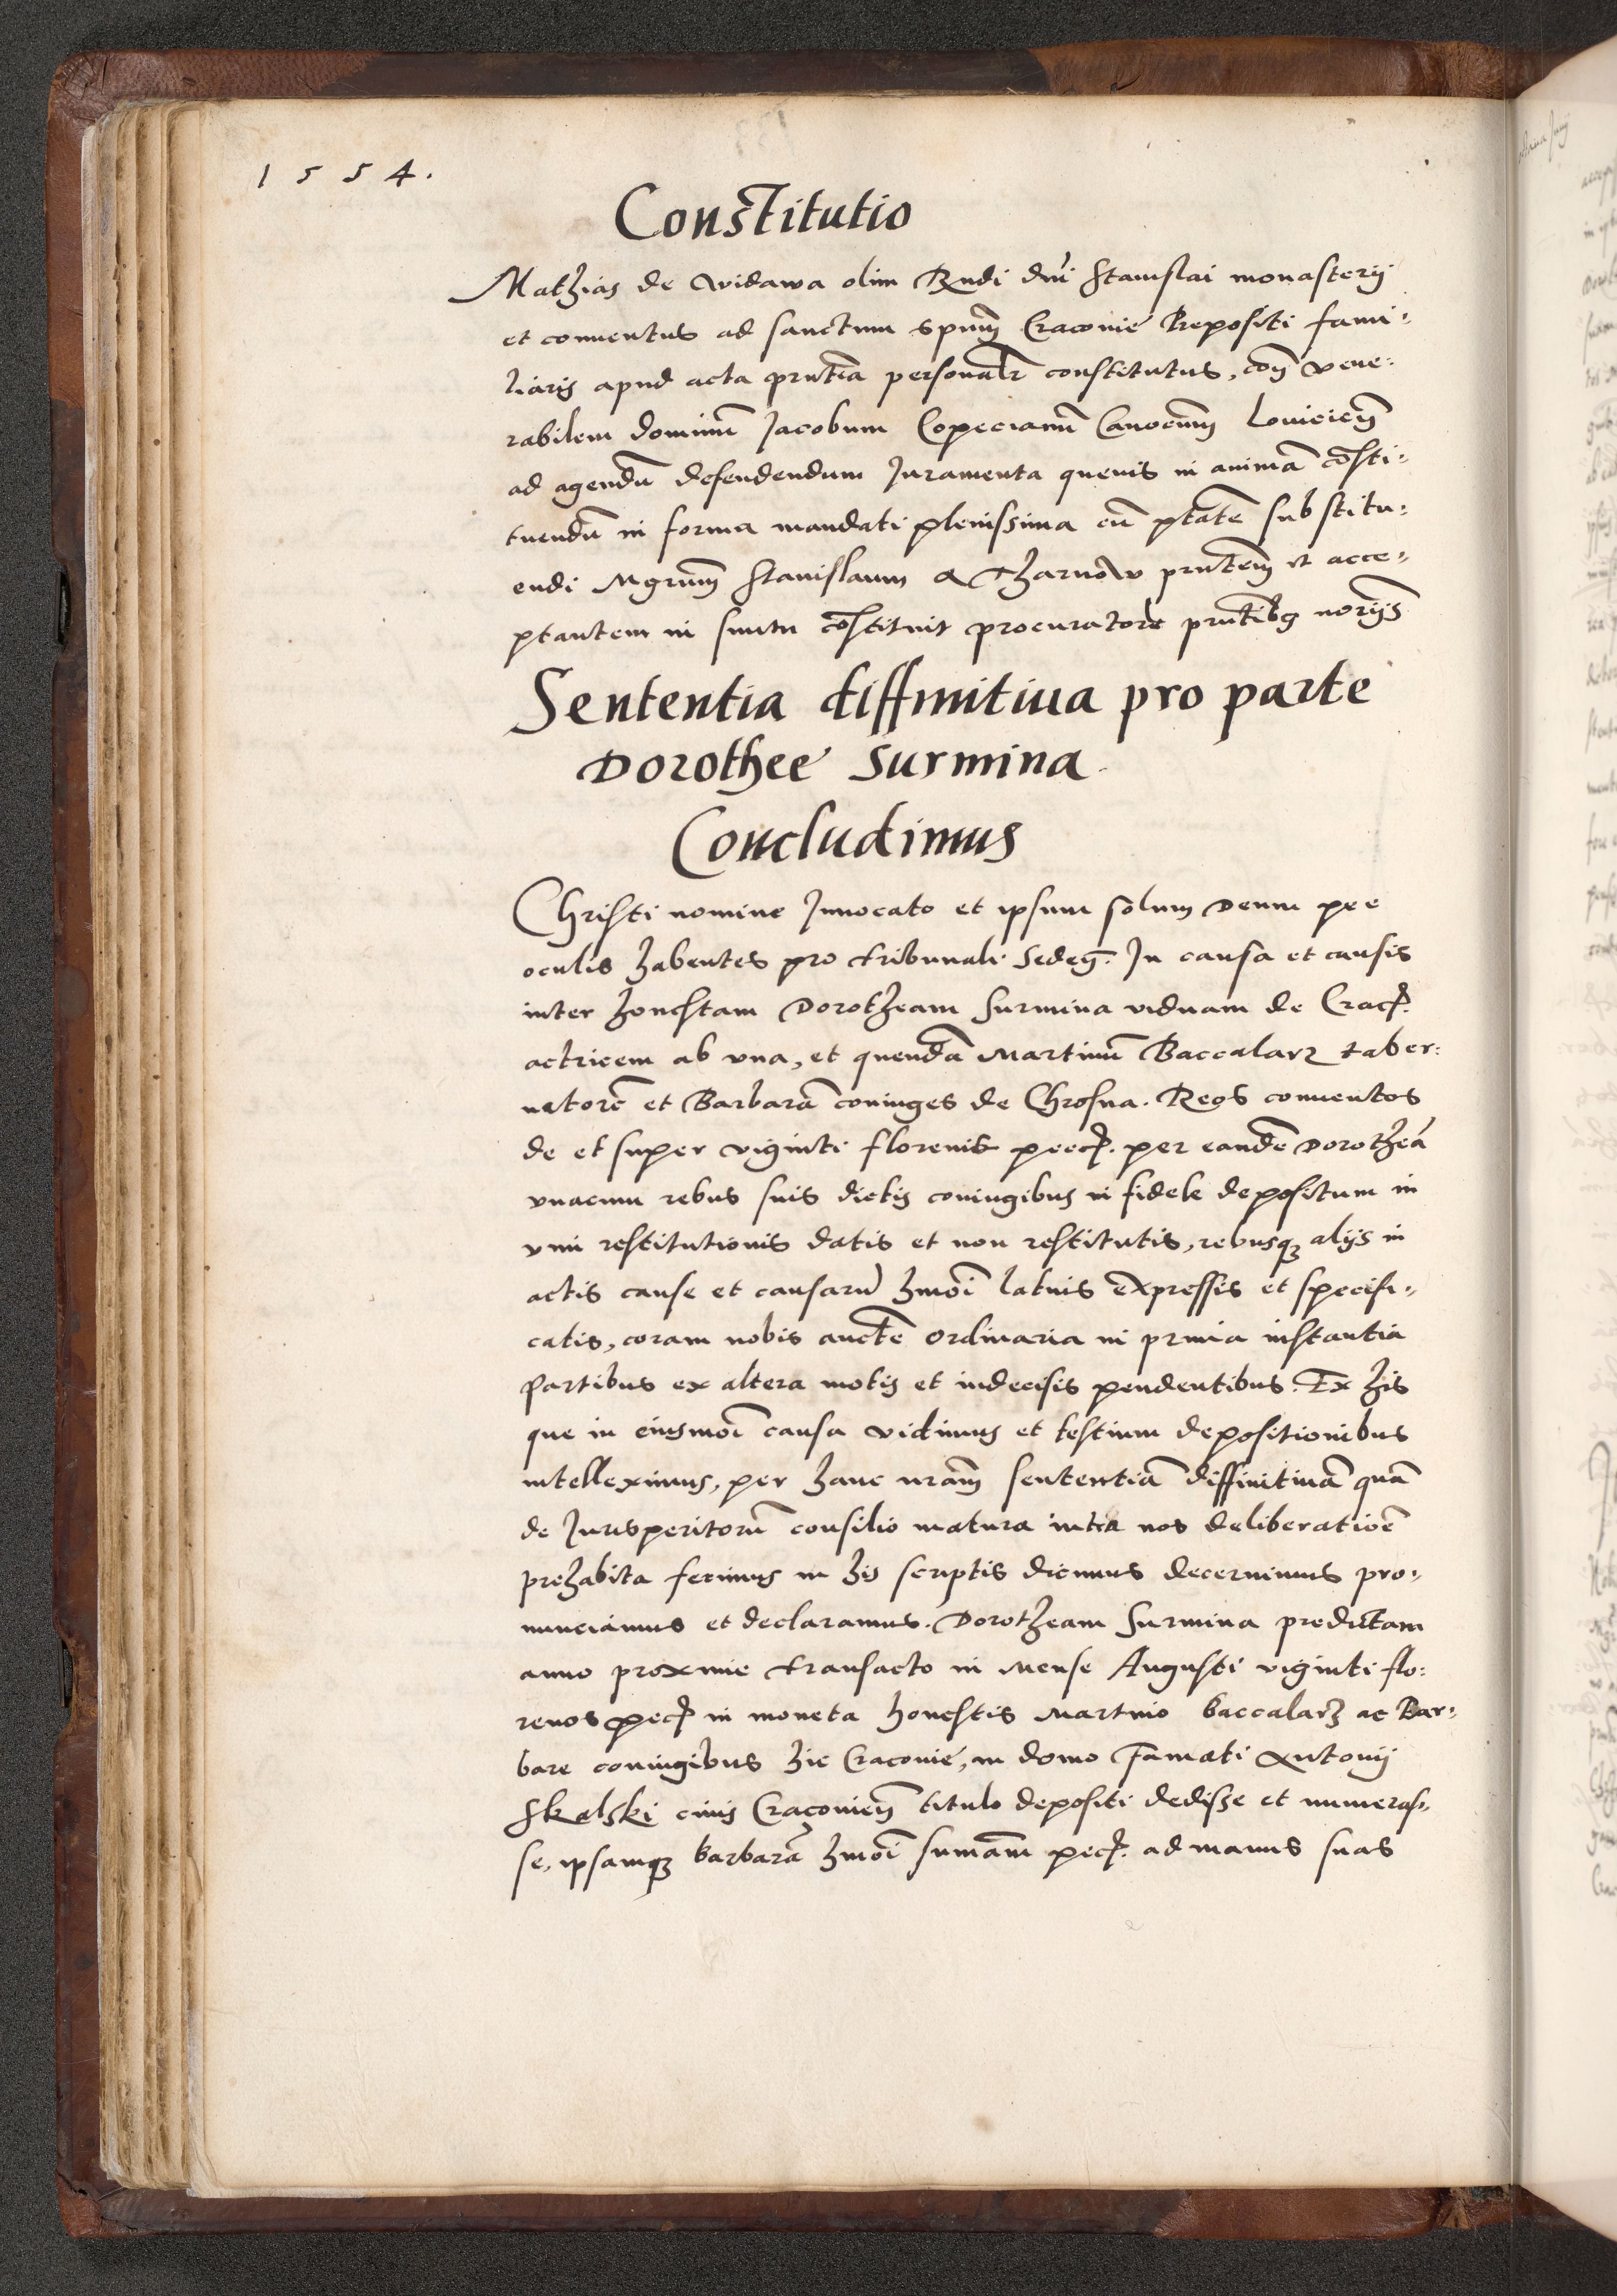 1554.
Constitutio
Mathias de Widawa olim Rndi dni Stanislai monasterij
et conuentus ad sanctum spum Cracovie Prepositi fami:
liaris apud acta pntia personalr constitutus, om vene:
rabilem dominū Jacobum Copecianū Canocum Louicien
ad agendū defendendum Juramenta quevis in animā cōsti:
tuendū in forma mandati plenissima cū ptate substitu:
endi Mgrum Stanislaum a Tharnow pntem et acce:
ptantem in suum cōstituit procuratore pntibq norijs
Sententia diffinitiua pro parte
Dorothee Surmina
Concludimus
Christi nomine Inuocato et ipsum solum Deum pre
oculis habentes pro tribunali seden. In causa et causis
inter honestam Dorotheam Surmina viduam de Crac.
actricem ab vna, et quendā Martinū Baccalarz taber:
natorē et Barbarā coniuges de Chrosna. Reos conuentos
de et super viginti florenis pec. per eandē Dorotheā
vnacum rebus suis dictis coniugibus in fidele depositum in
vim restitutionis datis et non restitutis, rebusq alijs in
actis cause et causarū hmōi latius expressis et specifi:
catis, coram nobis aucte ordinaria in prima instantia
Partibus ex altera motis et indecisis pendentibus. Ex his
que in eiusmōi causa vidimus et testium depositionibus
intelleximus, per hanc nram sententiā diffinitiuā quā
de Jurisperitorū consilio matura intra nos deliberatiōē
prehabita ferimus in his scriptis dicimus decernimus pro:
nunciamus et declaramus. Dorotheam Surmina predictam
anno proxime transacto in Mense Augusti viginti flo:
renos pec in moneta honestis Martino Baccalarz ac Bar:
bare coniugibus hic Cracovie, in domo Famati Antonij
Skalski ciuis Cracovien titulo depositi dedisse et numeras:
se, ipsamq Barbarā hmōi sumam pec. ad manus suas